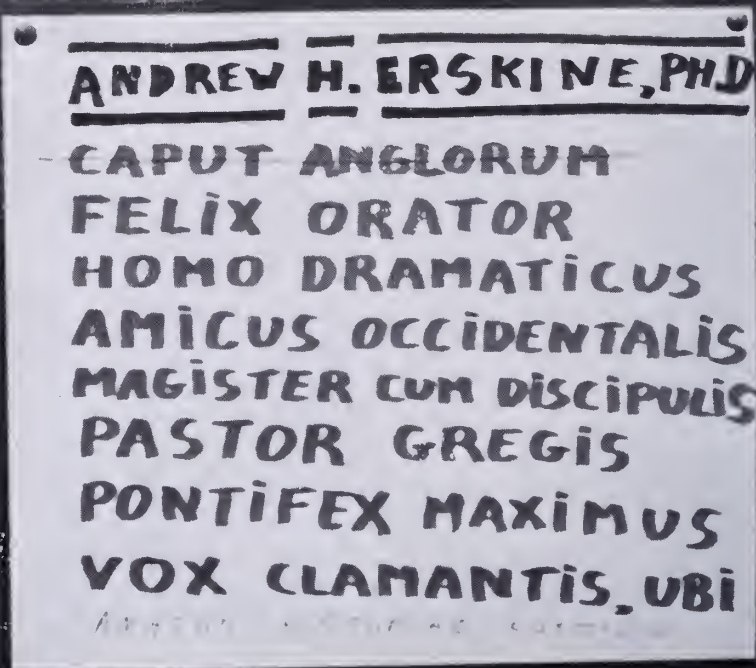 ANDREW H. ERSKINE, PH.D
CAPUT ANGLORUM
FELIX ORATOR
HOMO DRAMATICUS
AMICUS OCCIDENTALIS
MAGISTER CUM DISCIPULIS
PASTOR GREGIS
PONTIFEX MAXIMUS
VOX CLAMANTIS, UBI